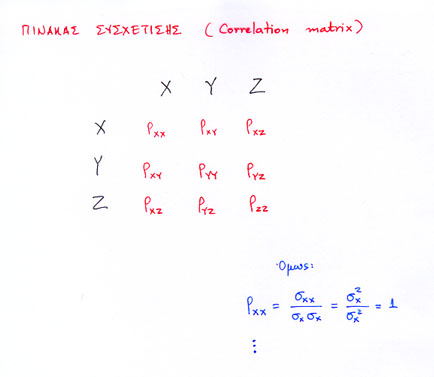 ΠΙΝΑΚΑΣ ΣΥΣΧΕΤΙΣΗΣ (Correlation matrix)
X Y Z
X ρ_XX ρ_XY ρ_XZ
Y ρ_XY ρ_YY ρ_YZ
Z ρ_XZ ρ_YZ ρ_ZZ
Όμως:
ρ_XX = σ_XX / σ_X σ_X = σ_X² / σ_X² = 1
⋮